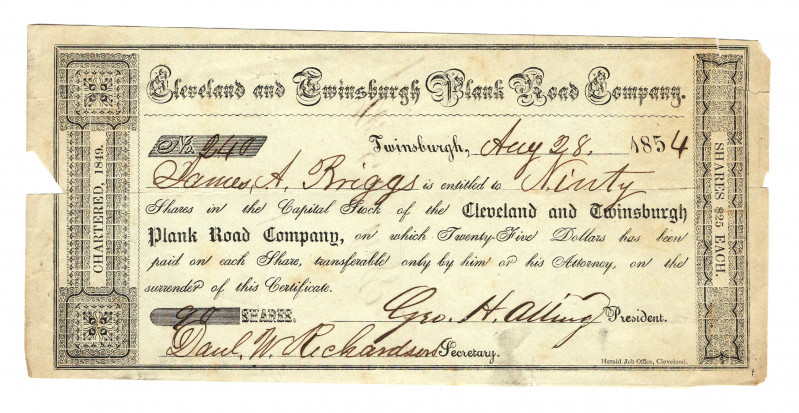 Cleveland and Twinsburgh Plank Road Company.
No. 240 Twinsburgh, Aug 28. 1854
James A. Briggs is entitled to Ninty
Shares in the Capital Stock of the Cleveland and Twinsburgh
Plank Road Company, on which Twenty-Five Dollars has been
paid on each Share, transferable only by him or his Attorney, on the
surrender of this Certificate.
90 SHARES. Geo. H. Alling President.
Danl. W. Richardson Secretary.
Herald Job Office, Cleveland.
CHARTERED, 1849.
SHARES $25 EACH.